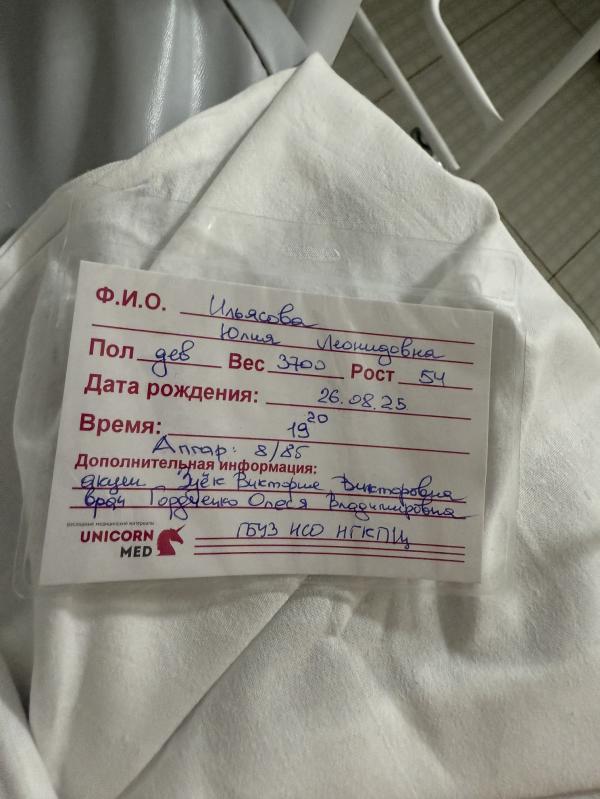 Ф.И.О. Ильясова
Юлия Леонидовна
Пол дев Вес 3700 Рост 54
Дата рождения: 26.08.25
Время: 19 20
Апгар: 8/8б
Дополнительная информация:
Виктория Викторовна
врач Гордиченко Олеся Владимировна
расходные медицинские материалы
UNICORN
MED
ГБУЗ НСО НГКПЦ